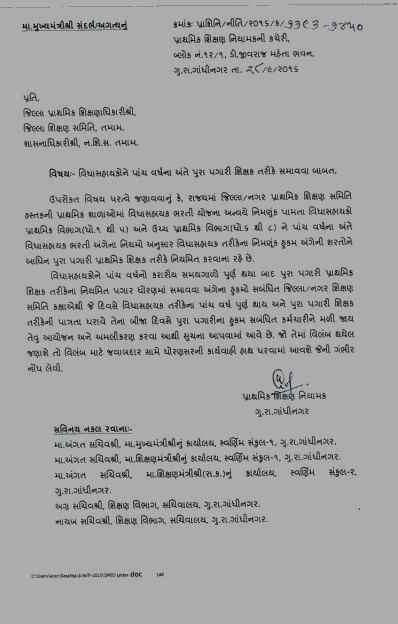 મા.મુખ્યમંત્રીશ્રી સંદર્ભ/અગત્યનું
ક્રમાંકઃ પ્રાશિનિ/નીતિ/૨૦૧૬/ક/૧૩૯૩-૧૪૫૦
પ્રાથમિક શિક્ષણ નિયામકની કચેરી,
બ્લોક નં.૧૨/૧, ડૉ.જીવરાજ મહેતા ભવન,
ગુ.રા.ગાંધીનગર તા. ૨૮/૯/૨૦૧૬
પ્રતિ,
જિલ્લા પ્રાથમિક શિક્ષણાધિકારીશ્રી,
જિલ્લા શિક્ષણ સમિતિ, તમામ.
શાસનાધિકારીશ્રી, ન.શિ.સ. તમામ.
વિષયઃ- વિદ્યાસહાયકોને પાંચ વર્ષના અંતે પુરા પગારી શિક્ષક તરીકે સમાવવા બાબત.
ઉપરોક્ત વિષય પરત્વે જણાવવાનું કે, રાજ્યમાં જિલ્લા/નગર પ્રાથમિક શિક્ષણ સમિતિ
હસ્તકની પ્રાથમિક શાળાઓમાં વિદ્યાસહાયક ભરતી યોજના અન્વયે નિમણૂંક પામતા વિદ્યાસહાયકો
પ્રાથમિક વિભાગ(ધો.૧ થી ૫) અને ઉચ્ચ પ્રાથમિક વિભાગ(ધો.૬ થી ૮) ને પાંચ વર્ષના અંતે
વિદ્યાસહાયક ભરતી અંગેના નિયમો અનુસાર વિદ્યાસહાયક તરીકેના નિમણૂંક હુકમ અંગેની શરતોને
આધિન પુરા પગારી પ્રાથમિક શિક્ષક તરીકે નિયમિત કરવાના રહે છે.
વિદ્યાસહાયકોને પાંચ વર્ષનો કરારીય સમયગાળો પુર્ણ થયા બાદ પુરા પગારી પ્રાથમિક
શિક્ષક તરીકેના નિયમિત પગાર ધોરણમાં સમાવવા અંગેના હુકમો સબંધિત જિલ્લા/નગર શિક્ષણ
સમિતિ કક્ષાએથી જે દિવસે વિદ્યાસહાયક તરીકેના પાંચ વર્ષ પુર્ણ થાય અને પુરા પગારી શિક્ષક
તરીકેની પાત્રતા ધરાવે તેના બીજા દિવસે પુરા પગારીના હુકમ સબંધિત કર્મચારીને મળી જાય
તેવુ આયોજન અને અમલીકરણ કરવા આથી સુચના આપવામાં આવે છે. જો તેમાં વિલંબ થયેલ
જણાશે તો વિલંબ માટે જવાબદાર સામે ધોરણસરની કાર્યવાહી હાથ ધરવામાં આવશે જેની ગંભીર
નોંધ લેવી.
પ્રાથમિક શિક્ષણ નિયામક
ગુ.રા.ગાંધીનગર
સવિનય નકલ રવાનાઃ-
મા.અંગત સચિવશ્રી, મા.મુખ્યમંત્રીશ્રીનું કાર્યાલય, સ્વર્ણિમ સંકુલ-૧, ગુ.રા.ગાંધીનગર.
મા.અંગત સચિવશ્રી, મા.શિક્ષણમંત્રીશ્રીનું કાર્યાલય, સ્વર્ણિમ સંકુલ-૧, ગુ.રા.ગાંધીનગર.
મા.અંગત સચિવશ્રી, મા.શિક્ષણમંત્રીશ્રી(રા.ક.)નું કાર્યાલય, સ્વર્ણિમ સંકુલ-૨,
ગુ.રા.ગાંધીનગર.
અગ્ર સચિવશ્રી, શિક્ષણ વિભાગ, સચિવાલય, ગુ.રા.ગાંધીનગર.
નાયબ સચિવશ્રી, શિક્ષણ વિભાગ, સચિવાલય, ગુ.રા.ગાંધીનગર.
148